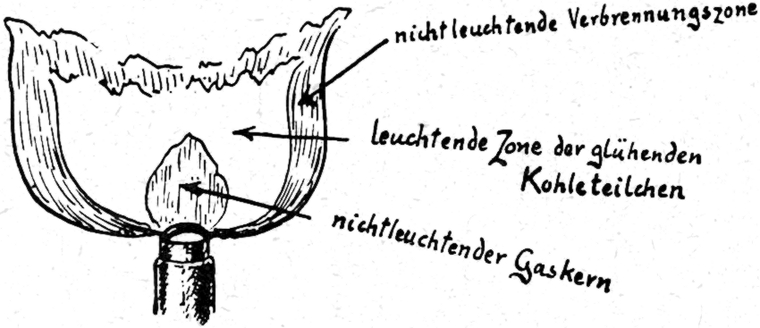 nichtleuchtende Verbrennungszone
leuchtende Zone der glühenden
Kohleteilchen
nichtleuchtender Gaskern